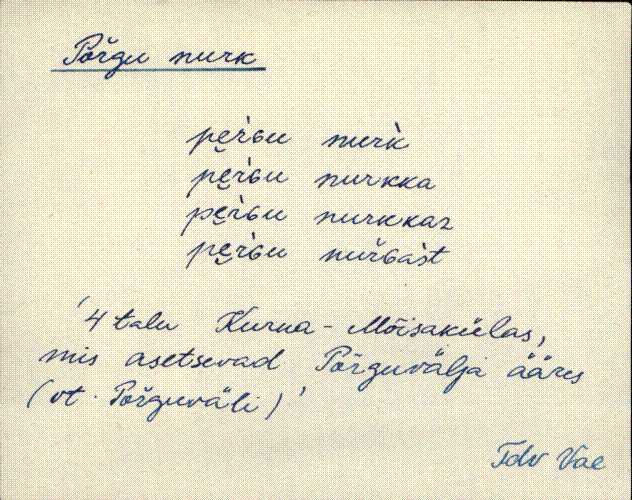 Põrgu nurk
pe̮ŕɢu nuŕk
pe̮ŕɢu nurkka
pe̮ŕɢu nurkkaz
pe̮ŕɢu nurɢàst
'4 talu Kurna-Mõisakülas,
mis asetsevad Põrguvälja ääres
(vt. Põrguväli)'
Tdv Vae